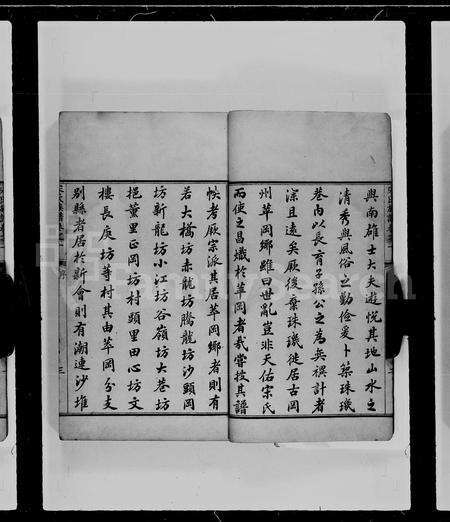 與南雄士大夫遊悅其地山水之
清秀與風俗之勤儉爰卜築珠璣
巷內以長育子孫公之為矣禩計者
深且遠矣厥後棄珠璣徙居古岡
州華岡鄉雖曰世亂豈非天佑宗氏
而使之昌熾於華岡者哉嘗按其譜
帙考厥宗派其居華岡鄉者則有
若大橋坊赤龍坊騰龍坊沙頭岡
坊新龍坊小江坊谷嶺坊大巷坊
挹薰里正岡坊村頭里田心坊文
樓長庚坊等村其由華岡分支
別縣者居於新會則有潮連沙堆